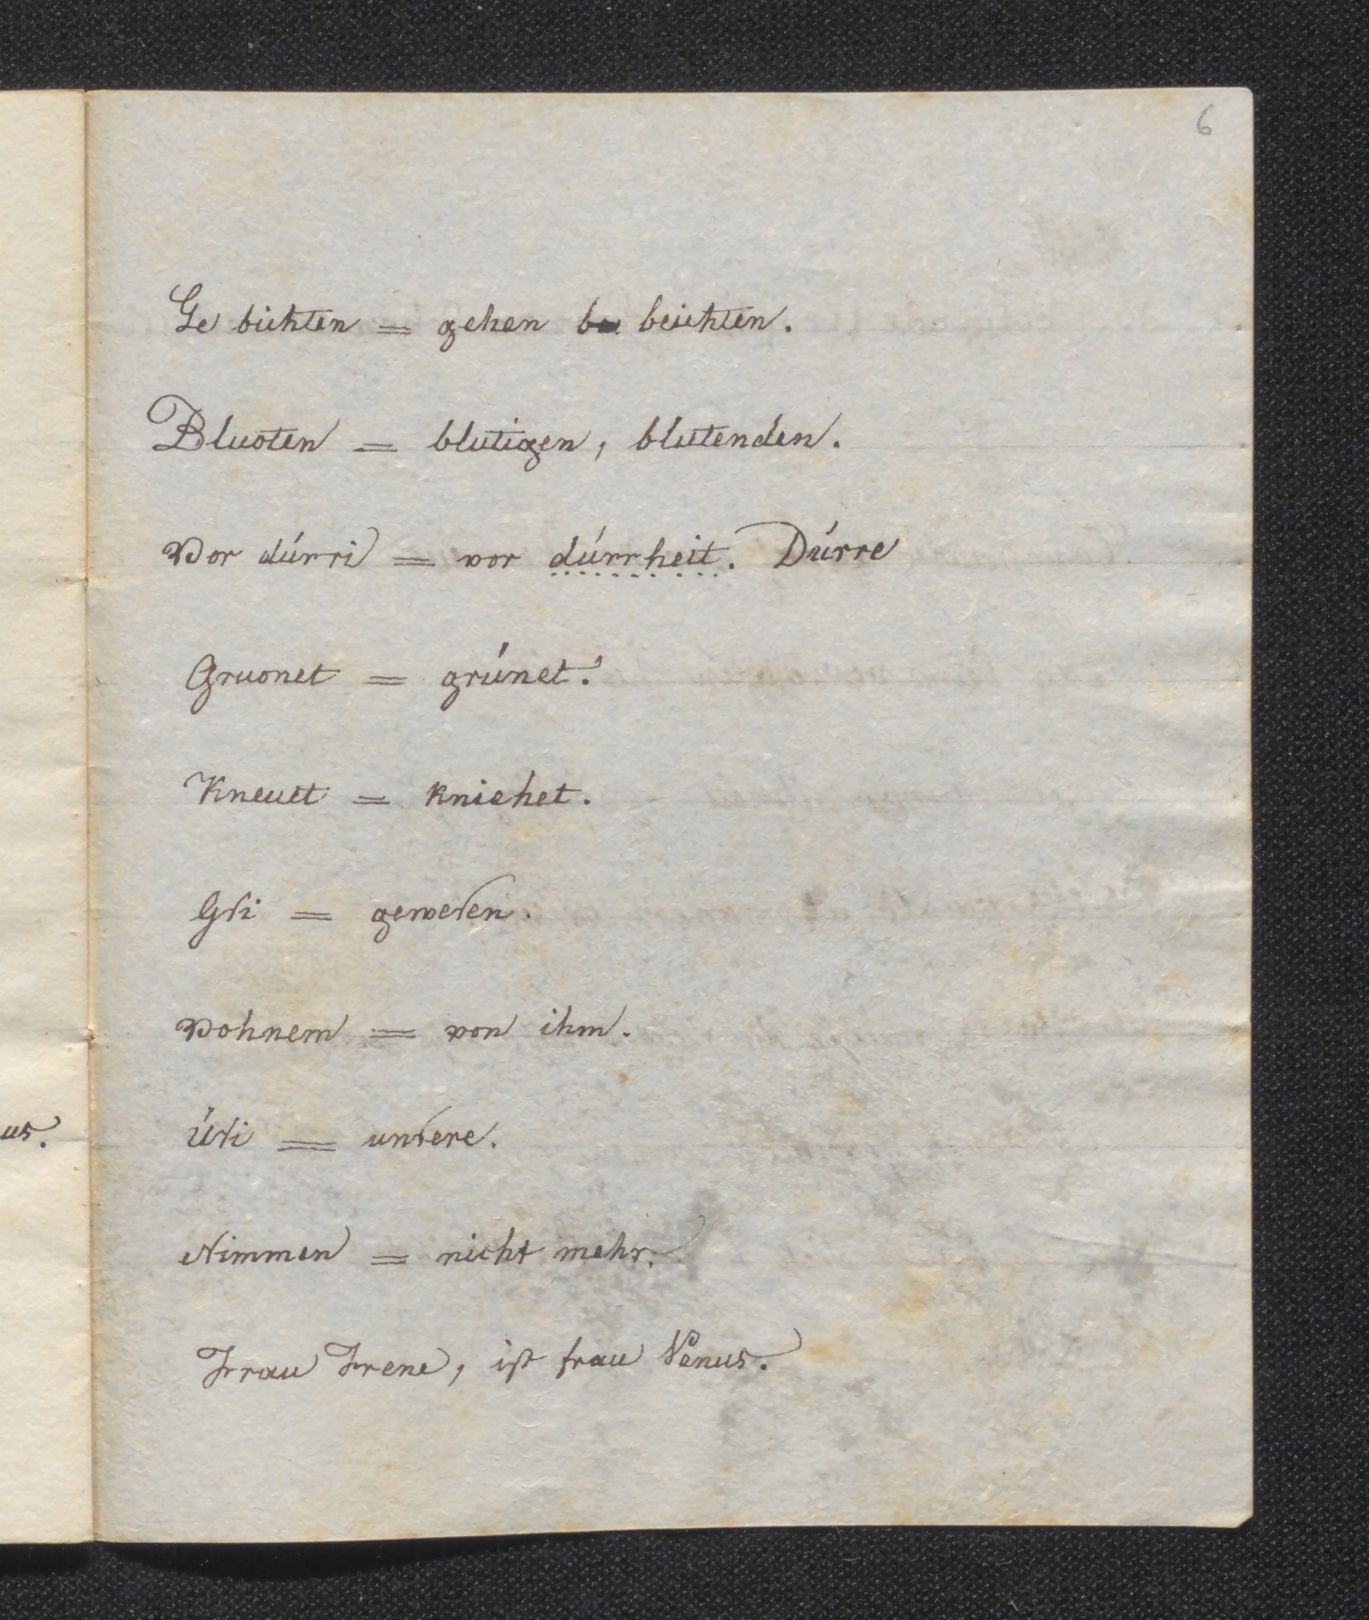 6
Ge bichten = gehen beichten.
Bluoten = blutigen, blutenden.
Vor dúrri = vor dúrrheit. Dúrre
Gruonet = grúnet.
Kneuet = kniehet.
Gsi = gewesen.
Vohnem = von ihm.
us.
Úsi = unsere.
Nimmen = nicht mehr.
Frau Frene, ist frau Venus.